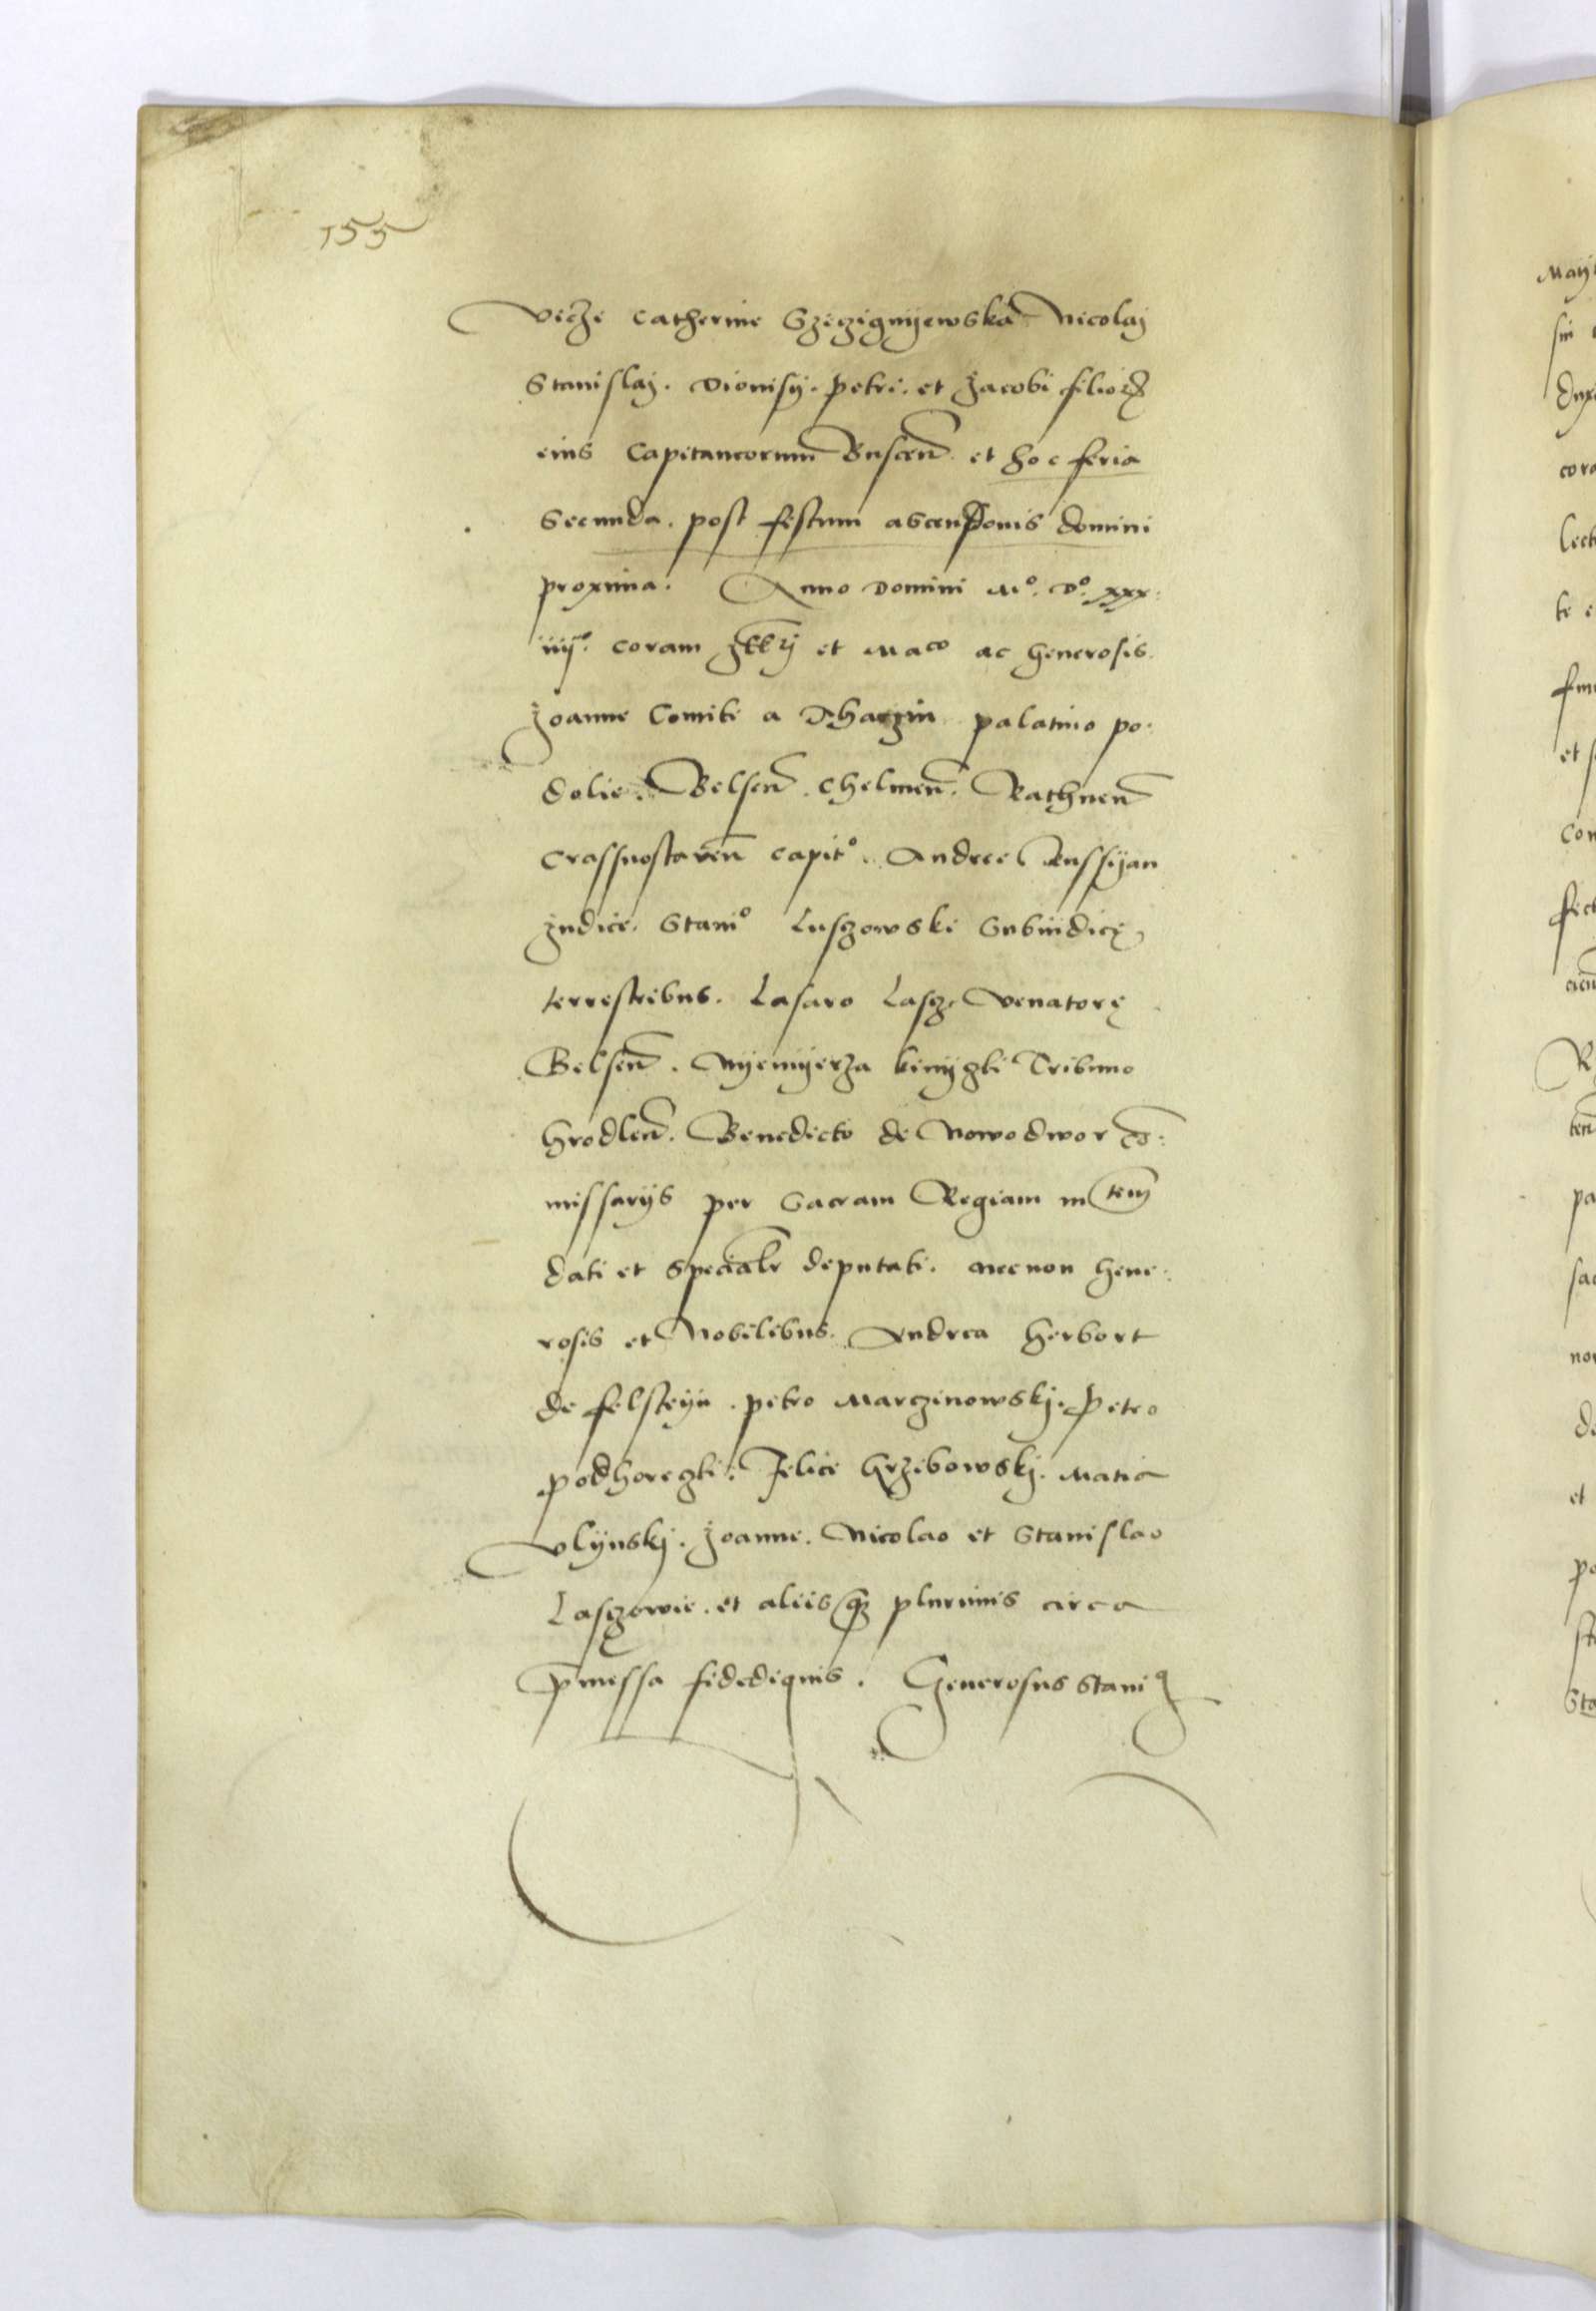 155
veze Catherine Szczignyewska Nicolaj
Stanislaj. Dionisij. Petri. et Jacobi filioꝝ
eius Capitaneorum Buscen̄ et hoc feria
Secunda. post festum ascensionis domini
proxima. Anno Domini Mº. Dº. xxx
iiijº. coram et Maco ac Generosis
Joanne Comite a Tharzin palatino po
dolie. Belsen̄. Chelmen̄. Rathnen̄
Crassnostaven̄ capitº. Andree Russyan
Judice. Staniº Luszowski Subiudice
terrestribus. Lasaro Lasz. Venatore
Belsen̄. Nyemyerza Tribuno
Hrodlen̄. Benedicto de Nowodwor cō
missarijs per Sacram Regiam M tem
dati et Specialr deputati. necnon Gene
rosis et Nobilibus. Andrea Herbort
de Felsteyn. Petro Marczinowskj. Petro
Podhoreczki. Felice Grzibowskj. Matia
Vlynskj. Joanne. Nicolao et Stanislao
Laszowie. et aliis qꝫ plurimis circa
p̄missa fidedignis. Generosus Staniꝰ